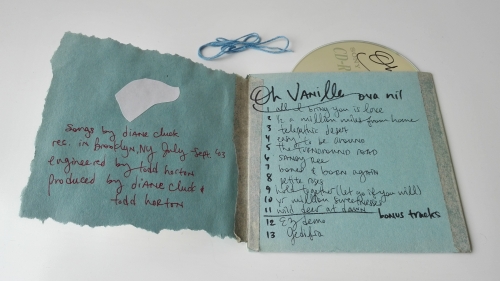 Songs by diane cluck
rec. in Brooklyn, NY July - Sept '03
engineered by todd horton
produced by diANE cluck &
todd horton
CD-R
Oh Vanille ova nil
1 all I bring you is love
2 1/2 a million miles from home
3 telepathic desert
4 easy to be around
5 the TURNAROUND ROAD
6 SANDY REE
7 bones & born again
8 petite roses
9 hold together (let go if you will)
10 yr million sweetnesses
11 wild deer at dawn
bonus tracks
12 EZ demo
13